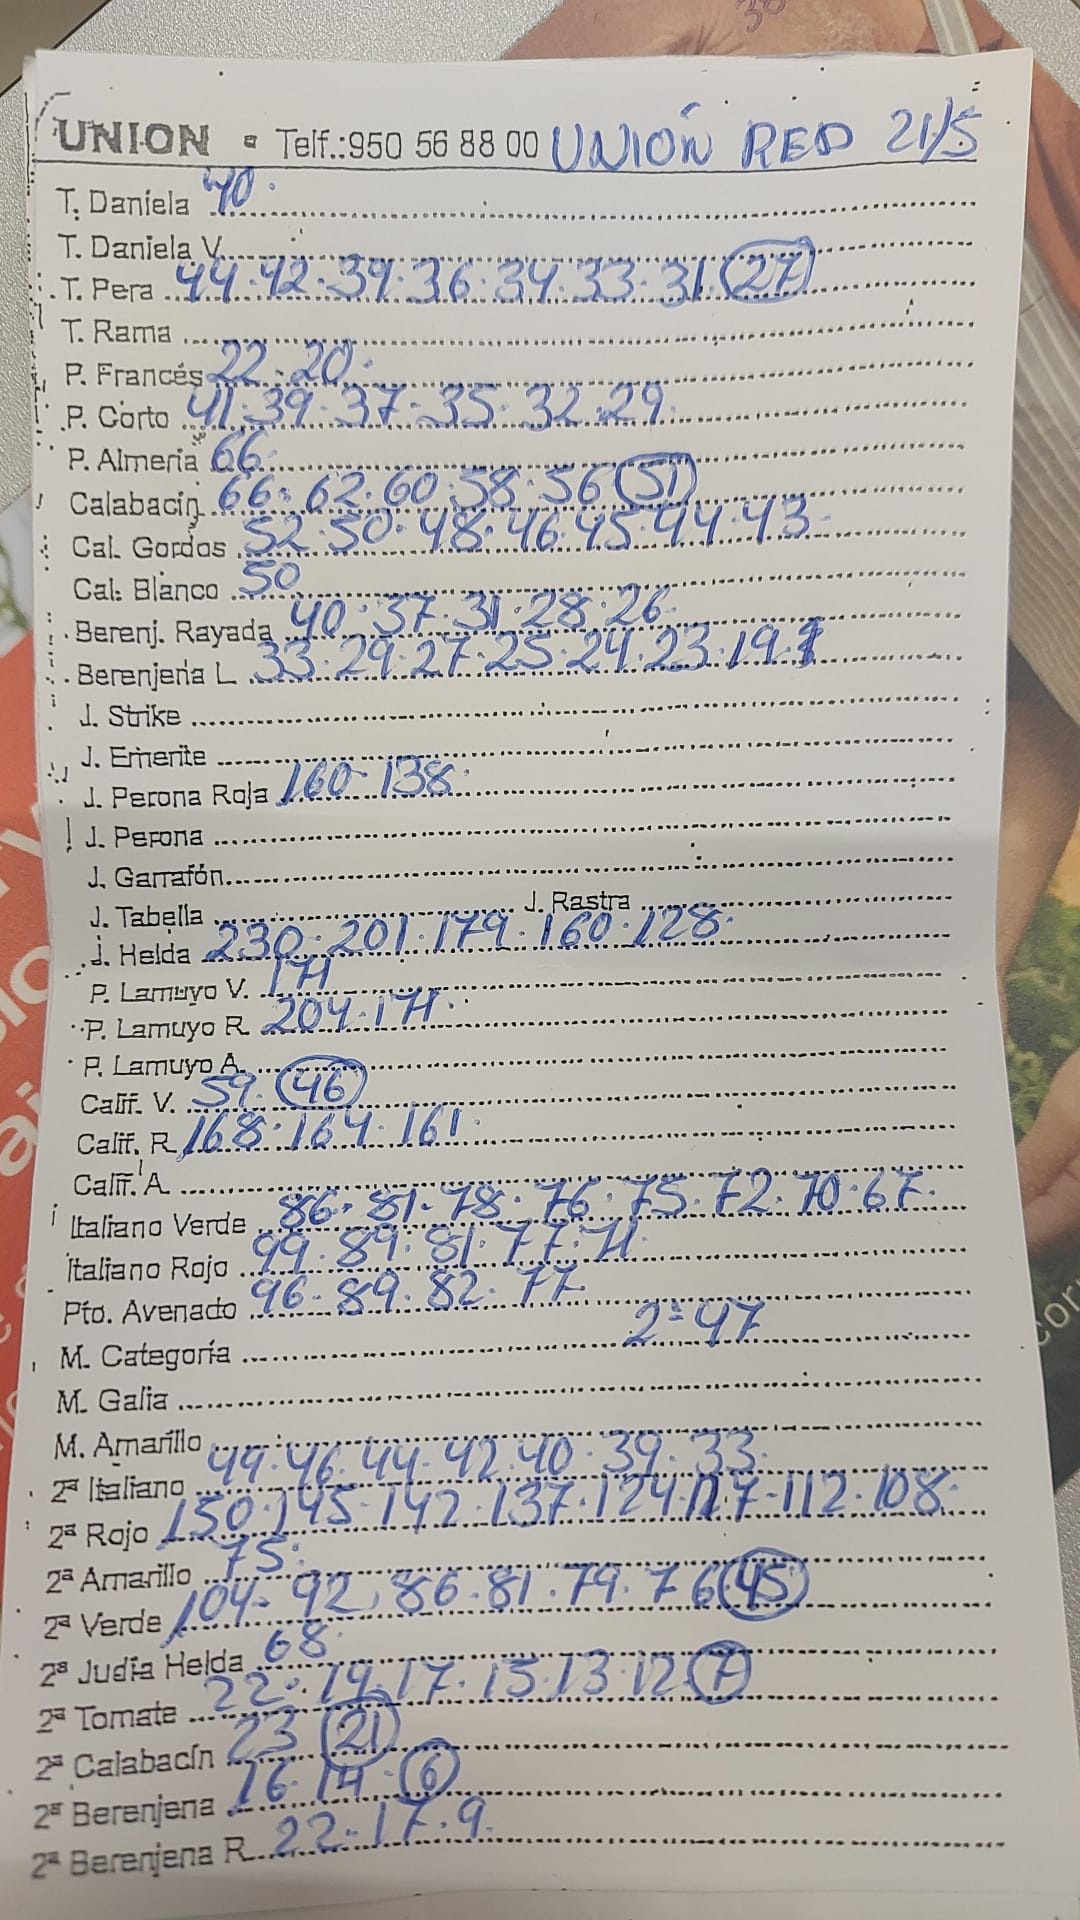 UNION - Telf.:950 56 88 00 UNIÓN RED 21/5
T. Daniela 40.
T. Daniela V.
T. Pera 44.42.39.36.34.33.31.27
T. Rama
P. Francés 22.20.
P. Corto 41.39.37.35.32.29.
P. Almería 66
Calabacín 66.62.60.58.56 51
Cal. Gordos 52.50.48.46.45.44.43
Cal. Blanco 50
Berenj. Rayada 40.37.31.28.26
Berenjena L 33.29.27.25.24.23.19.
J. Strike
J. Emerite
J. Perona Roja 160.138.
J. Perona
J. Garrafón
J. Tabella J. Rastra
J. Helda 230.201.179.160.128.
P. Lamuyo V. 171
P. Lamuyo R. 204.171.
P. Lamuyo A.
Calif. V. 59.46
Calif. R 168.164.161.
Calif. A
Italiano Verde 86.81.78.76.75.72.70.67.
Italiano Rojo 99.89.81.77.71.
Pto. Avenado 96.89.82.77
M. Categoría 2ª 47
M. Galia
M. Amarillo
2ª Italiano 49.46.44.42.40.39.33.
2ª Rojo 150.145.142.137.124.117.112.108.
2ª Amarillo 75.
2ª Verde 104.92.86.81.79.76 45
2ª Judía Helda 68
2ª Tomate 22.19.17.15.13.12 7
2ª Calabacín 23 21
2ª Berenjena 16.14.6
2ª Berenjena R. 22.17.9.